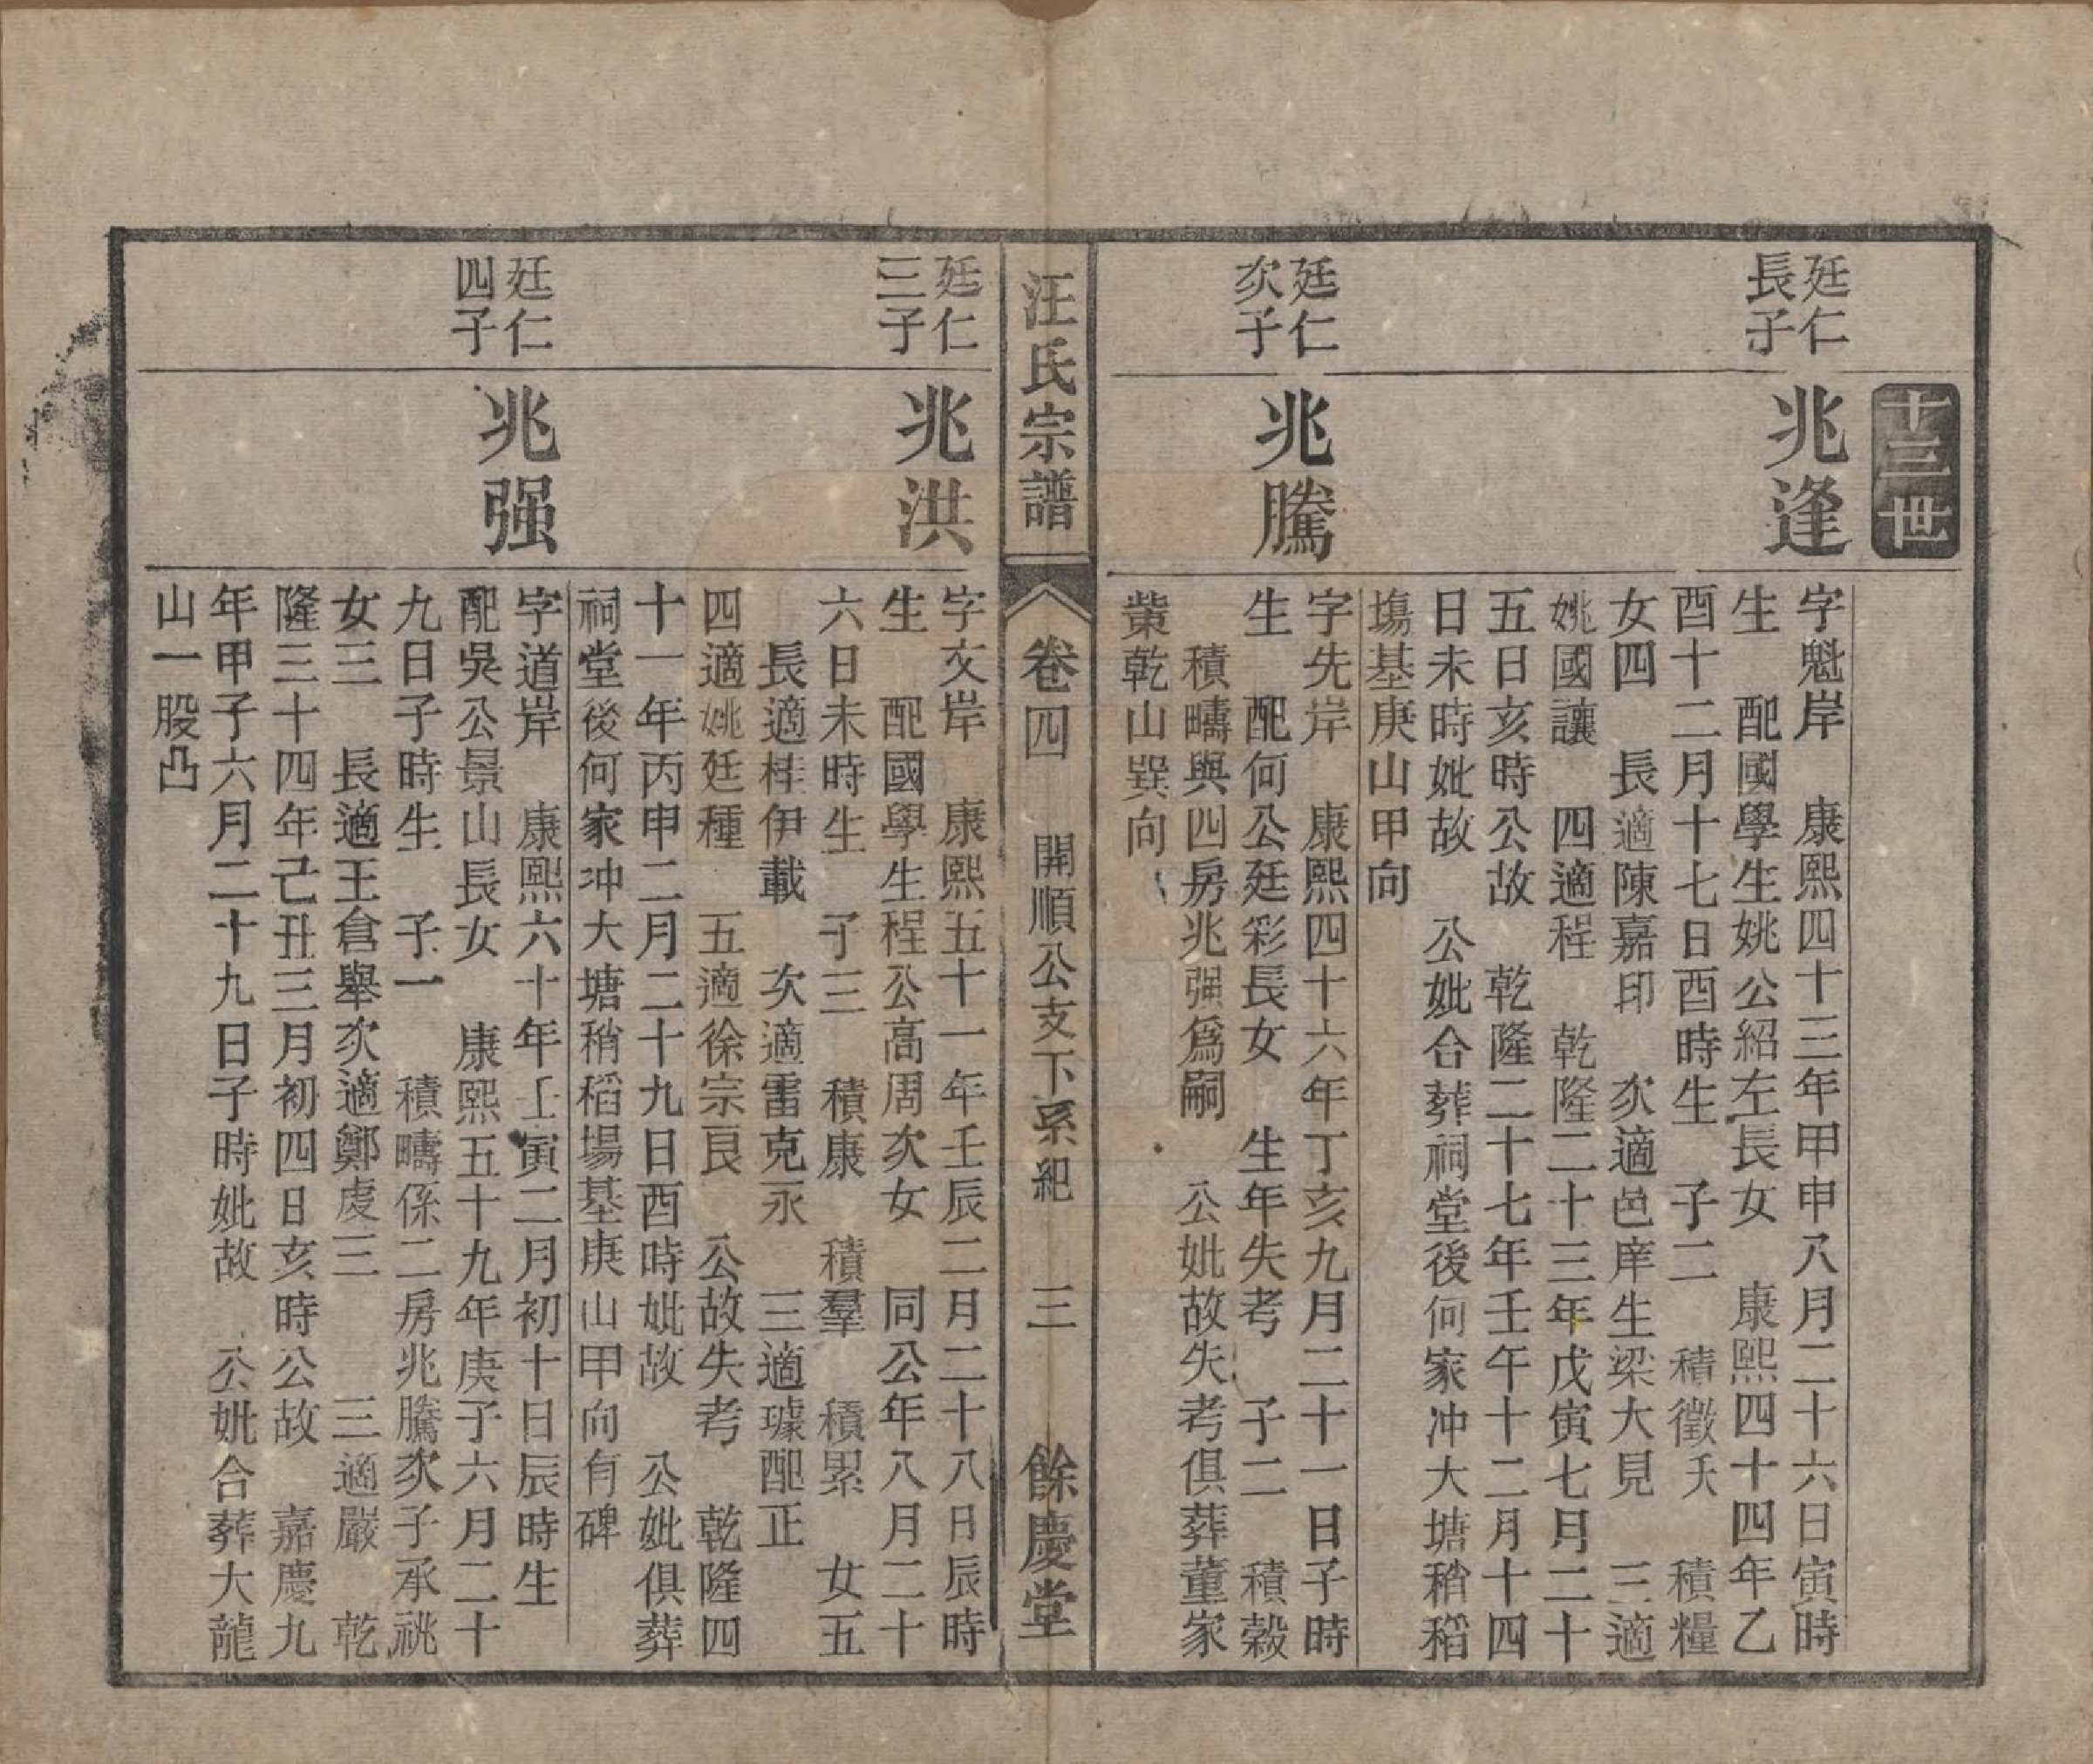 十三世
廷仁
長子
兆逢
字魁岸　康熙四十三年甲申八月二十六日寅時
生　配國學生姚公紹左長女　康熙四十四年乙
酉十二月十七日酉時生　子二　積徵夭　積糧
女四　長適陳嘉印　次適邑庠生梁大見　三適
姚國讓　四適程　乾隆二十三年戊寅七月二十
五日亥時公故　乾隆二十七年壬午十二月十四
日未時妣故　公妣合葬祠堂後何家冲大塘稍稻
塲基庚山甲向
廷仁
次子
兆騰
字先岸　康熙四十六年丁亥九月二十一日子時
生　配何公廷彩長女　生年失考　子二　積榖
積疇與四房兆强爲嗣　公妣故失考俱葬董家
塋乾山巽向
汪氏宗譜
卷四　開順公支下系紀　三　餘慶堂
廷仁
三子
兆洪
字文岸　康熙五十一年壬辰二月二十八日辰時
生　配國學生程公高周次女　同公年八月二十
六日未時生　子三　積康　積羣　積累　女五
長適桂伊載　次適雷克永　三適璩配正
四適姚廷種　五適徐宗良　公故失考　乾隆四
十一年丙申二月二十九日酉時妣故　公妣俱葬
祠堂後何家冲大塘稍稻場基庚山甲向有碑
廷仁
四子
兆强
字道岸　康熙六十年壬寅二月初十日辰時生
配吳公景山長女　康熙五十九年庚子六月二十
九日子時生　子一　積疇係二房兆騰次子承祧
女三　長適王倉舉次適鄭虔三　三適嚴　乾
隆三十四年己丑三月初四日亥時公故　嘉慶九
年甲子六月二十九日子時妣故　公妣合葬大龍
山一股凸